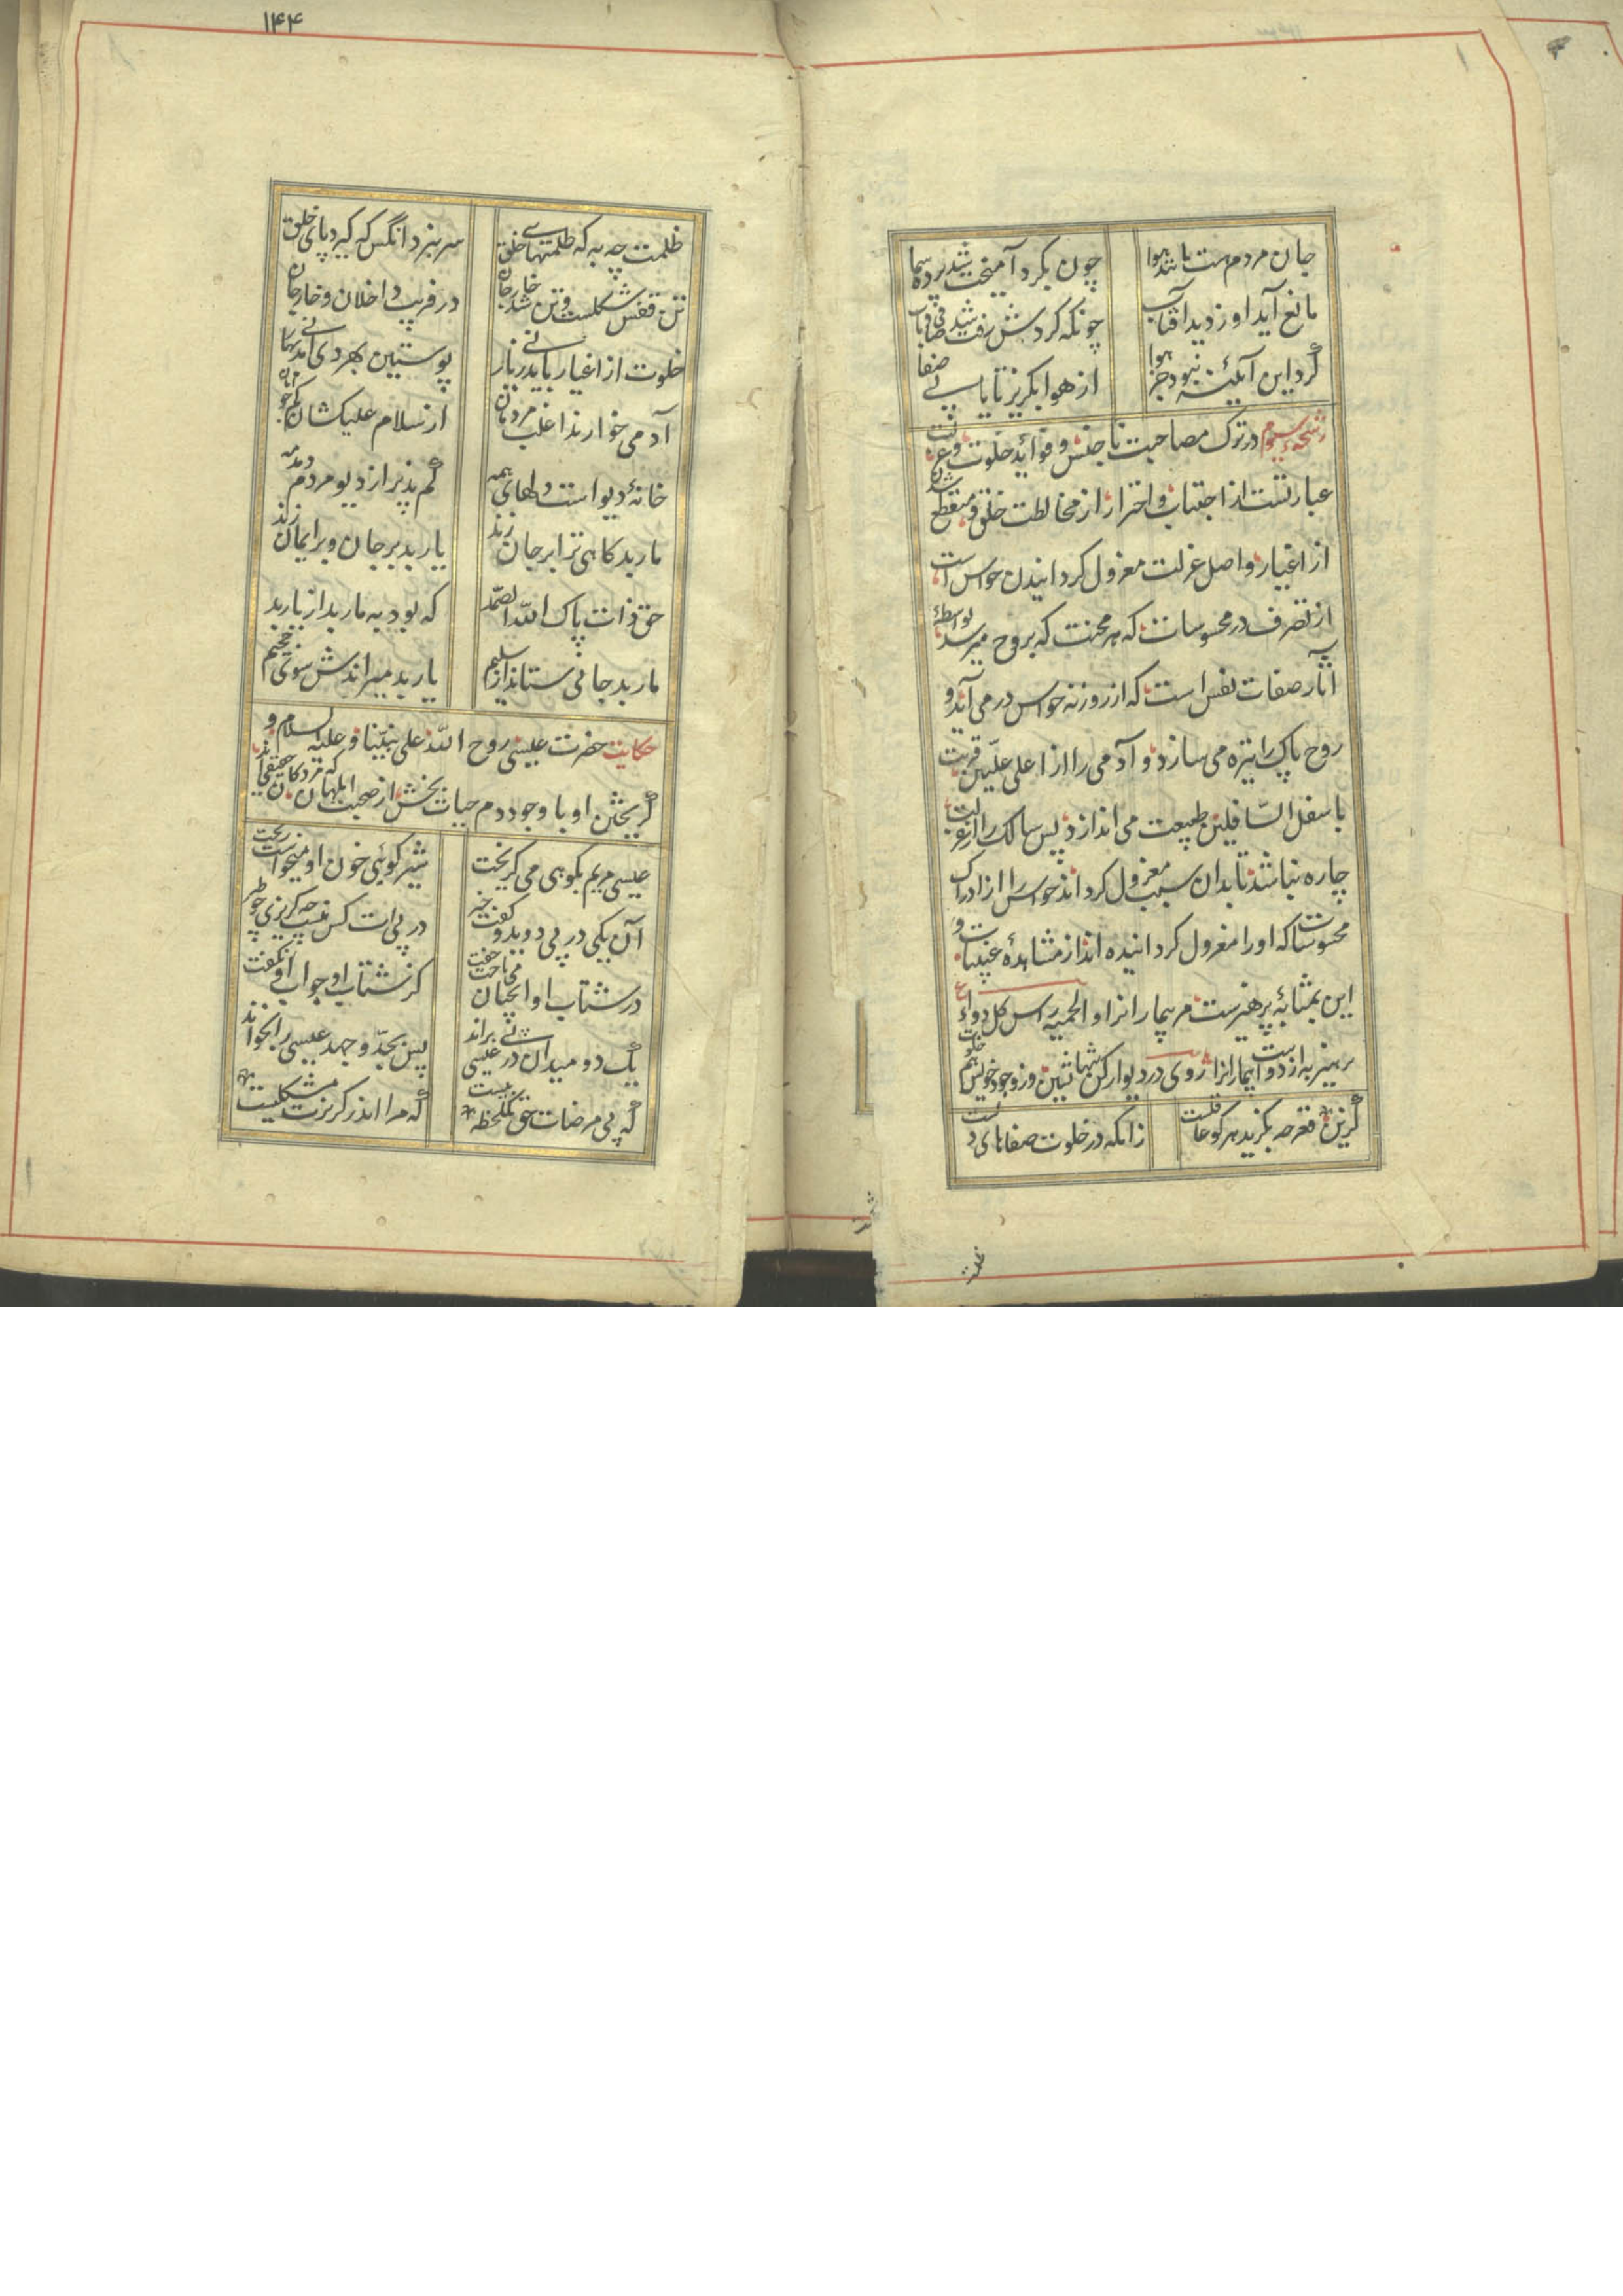 جان مردم هست مانند هوا
چون بگرد آمیخت شد پرده سما
مانع آید او ز دید آفتاب
چونکه گردش رفت شد صافی و ناب
گرد این آئینه نبود جز هوا
از هوا بگریز تا یابی صفا
رشحهٔ سیوم در ترک مصاحبت ناجنس و فوائد خلوت و عزلت
عبارتست از اجتناب و احتراز از مخالطت خلق و منقطع شدن
از اغیار و اصل عزلت معزول گردانیدن حواس است
از تصرف در محسوسات که هر محنت که بروح میرسد بواسطهٔ
آثار صفات نفس است که از روزنه حواس در می آید و
روح پاک را تیره می سازد و آدمی را از اعلی علیین قربت
باسفل السافلین طبیعت می اندازد پس سالک را از عزلت
چاره نباشد تا بدان سبب معزول گرداند حواس را از ادراک
محسوسات که او را معزول گردانیده اند از مشاهدهٔ غیبیات و
این بمثابهٔ پرهیزست مر بیمارانرا و الحمیة راس کل دواء
پرهیز به از دواست بیمارانرا روی در دیوار کن تنها نشین وز وجود خویش هم خلوت
گزین قعر چه بگزید هر کو عاقلست
زانکه در خلوت صفاهای دلست
ظلمت
۱۴۴
ظلمت چه به که ظلمتهای خلق
سر نبرد آنکس که گیرد پای خلق
تن قفس شکلست و تن شد خار جان
در فریب داخلان و خارجان
خلوت از اغیار باید نی ز یار
پوستین بهر دی آمد نی بهار
آدمی خوارند اغلب مردمان
از سلام علیکشان کم جو امان
خانهٔ دیو است دلهای همه
کم پذیر از دیو مردم دمدمه
مار بد گاهی ترا بر جان زند
یار بد بر جان و بر ایمان زند
حق ذات پاک الله الصمد
که بود به مار بد از یار بد
مار بد جانی ستاند از سلیم
یار بد میراندش سوی جحیم
حکایت حضرت عیسی روح الله علی نبینا و علیه السلام و
گریختن او با وجود دم حیات بخش از صحبت ابلهان که مردگان حقیقی اند
عیسی مریم بکوهی می گریخت
شیر گوئی خون او میخواست ریخت
آن یکی در پی دوید و گفت خیر
در پی ات کس نیست چه گریزی چو طیر
در شتاب او آنچنان می تاخت جفت
کز شتاب او جواب او نگفت
یک دو میدان در پی عیسی براند
پس بجد و جهد عیسی را بخواند
که پی مرضات حق یکلحظه بیست
که مرا اندر گریزت مشکلیست